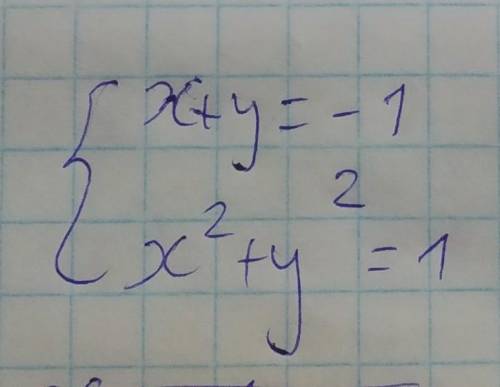 x+y=-1
x²+y²=1